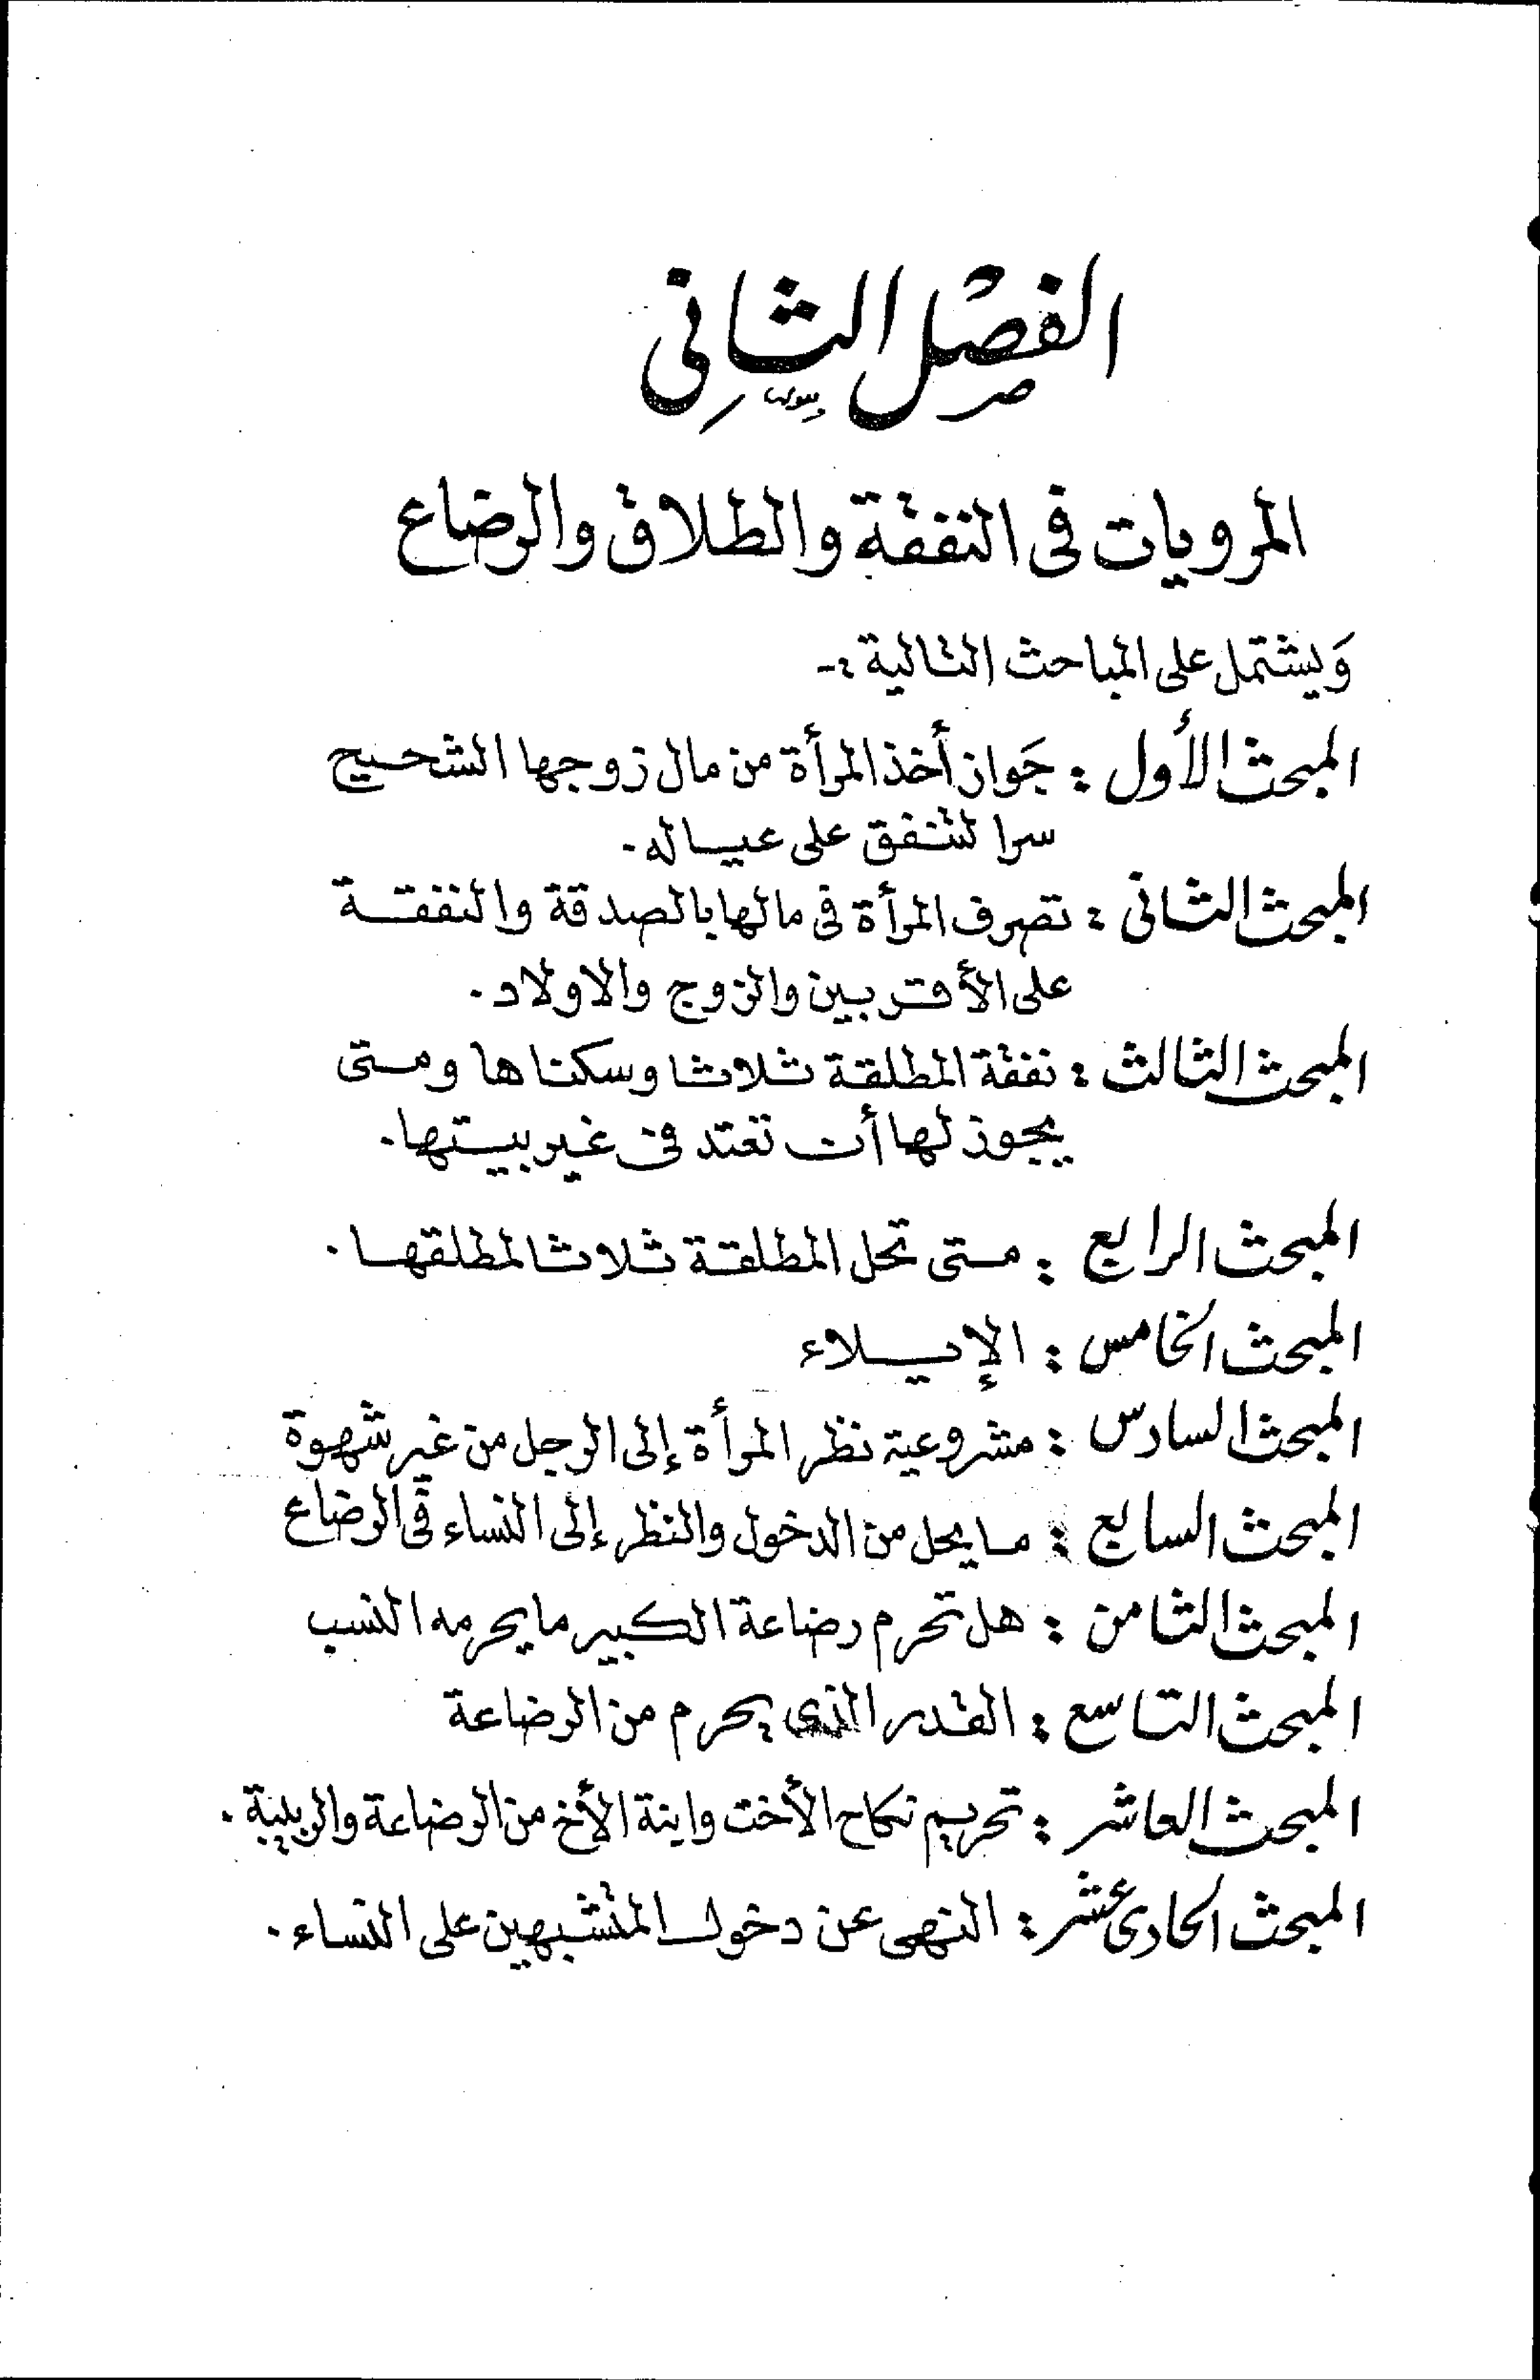 الفصل الثانى
المرويات فى النفقة والطلاق والرضاع
وَيشتمل على المباحث التالية :-
المبحث الأول : جَواز أخذ المرأة من مال زوجها الشحيح
سرا لتنفق على عياله .
المبحث الثانى : تصرف المرأة فى مالها بالصدقة والنفقة
على الأقربين والزوج والاولاد .
المبحث الثالث : نفقة المطلقة ثلاثا وسكناها ومتى
يجوز لها أن تعتد فى غير بيتها .
المبحث الرابع : متى تحل المطلقة ثلاثا لمطلقها .
المبحث الخامس : الإيلاء
المبحث السادس : مشروعية نظر المرأة إلى الرجل من غير شهوة
المبحث السابع : ما يحل من الدخول والنظر إلى النساء فى الرضاع
المبحث الثامن : هل تحرم رضاعة الكبير ما يحرمه النسب
المبحث التاسع : القدر الذى يحرم من الرضاعة
المبحث العاشر : تحريم نكاح الأخت وابنة الأخ من الرضاعة والربيبة .
المبحث الحادى عشر : النهى عن دخول المتشبهين على النساء .